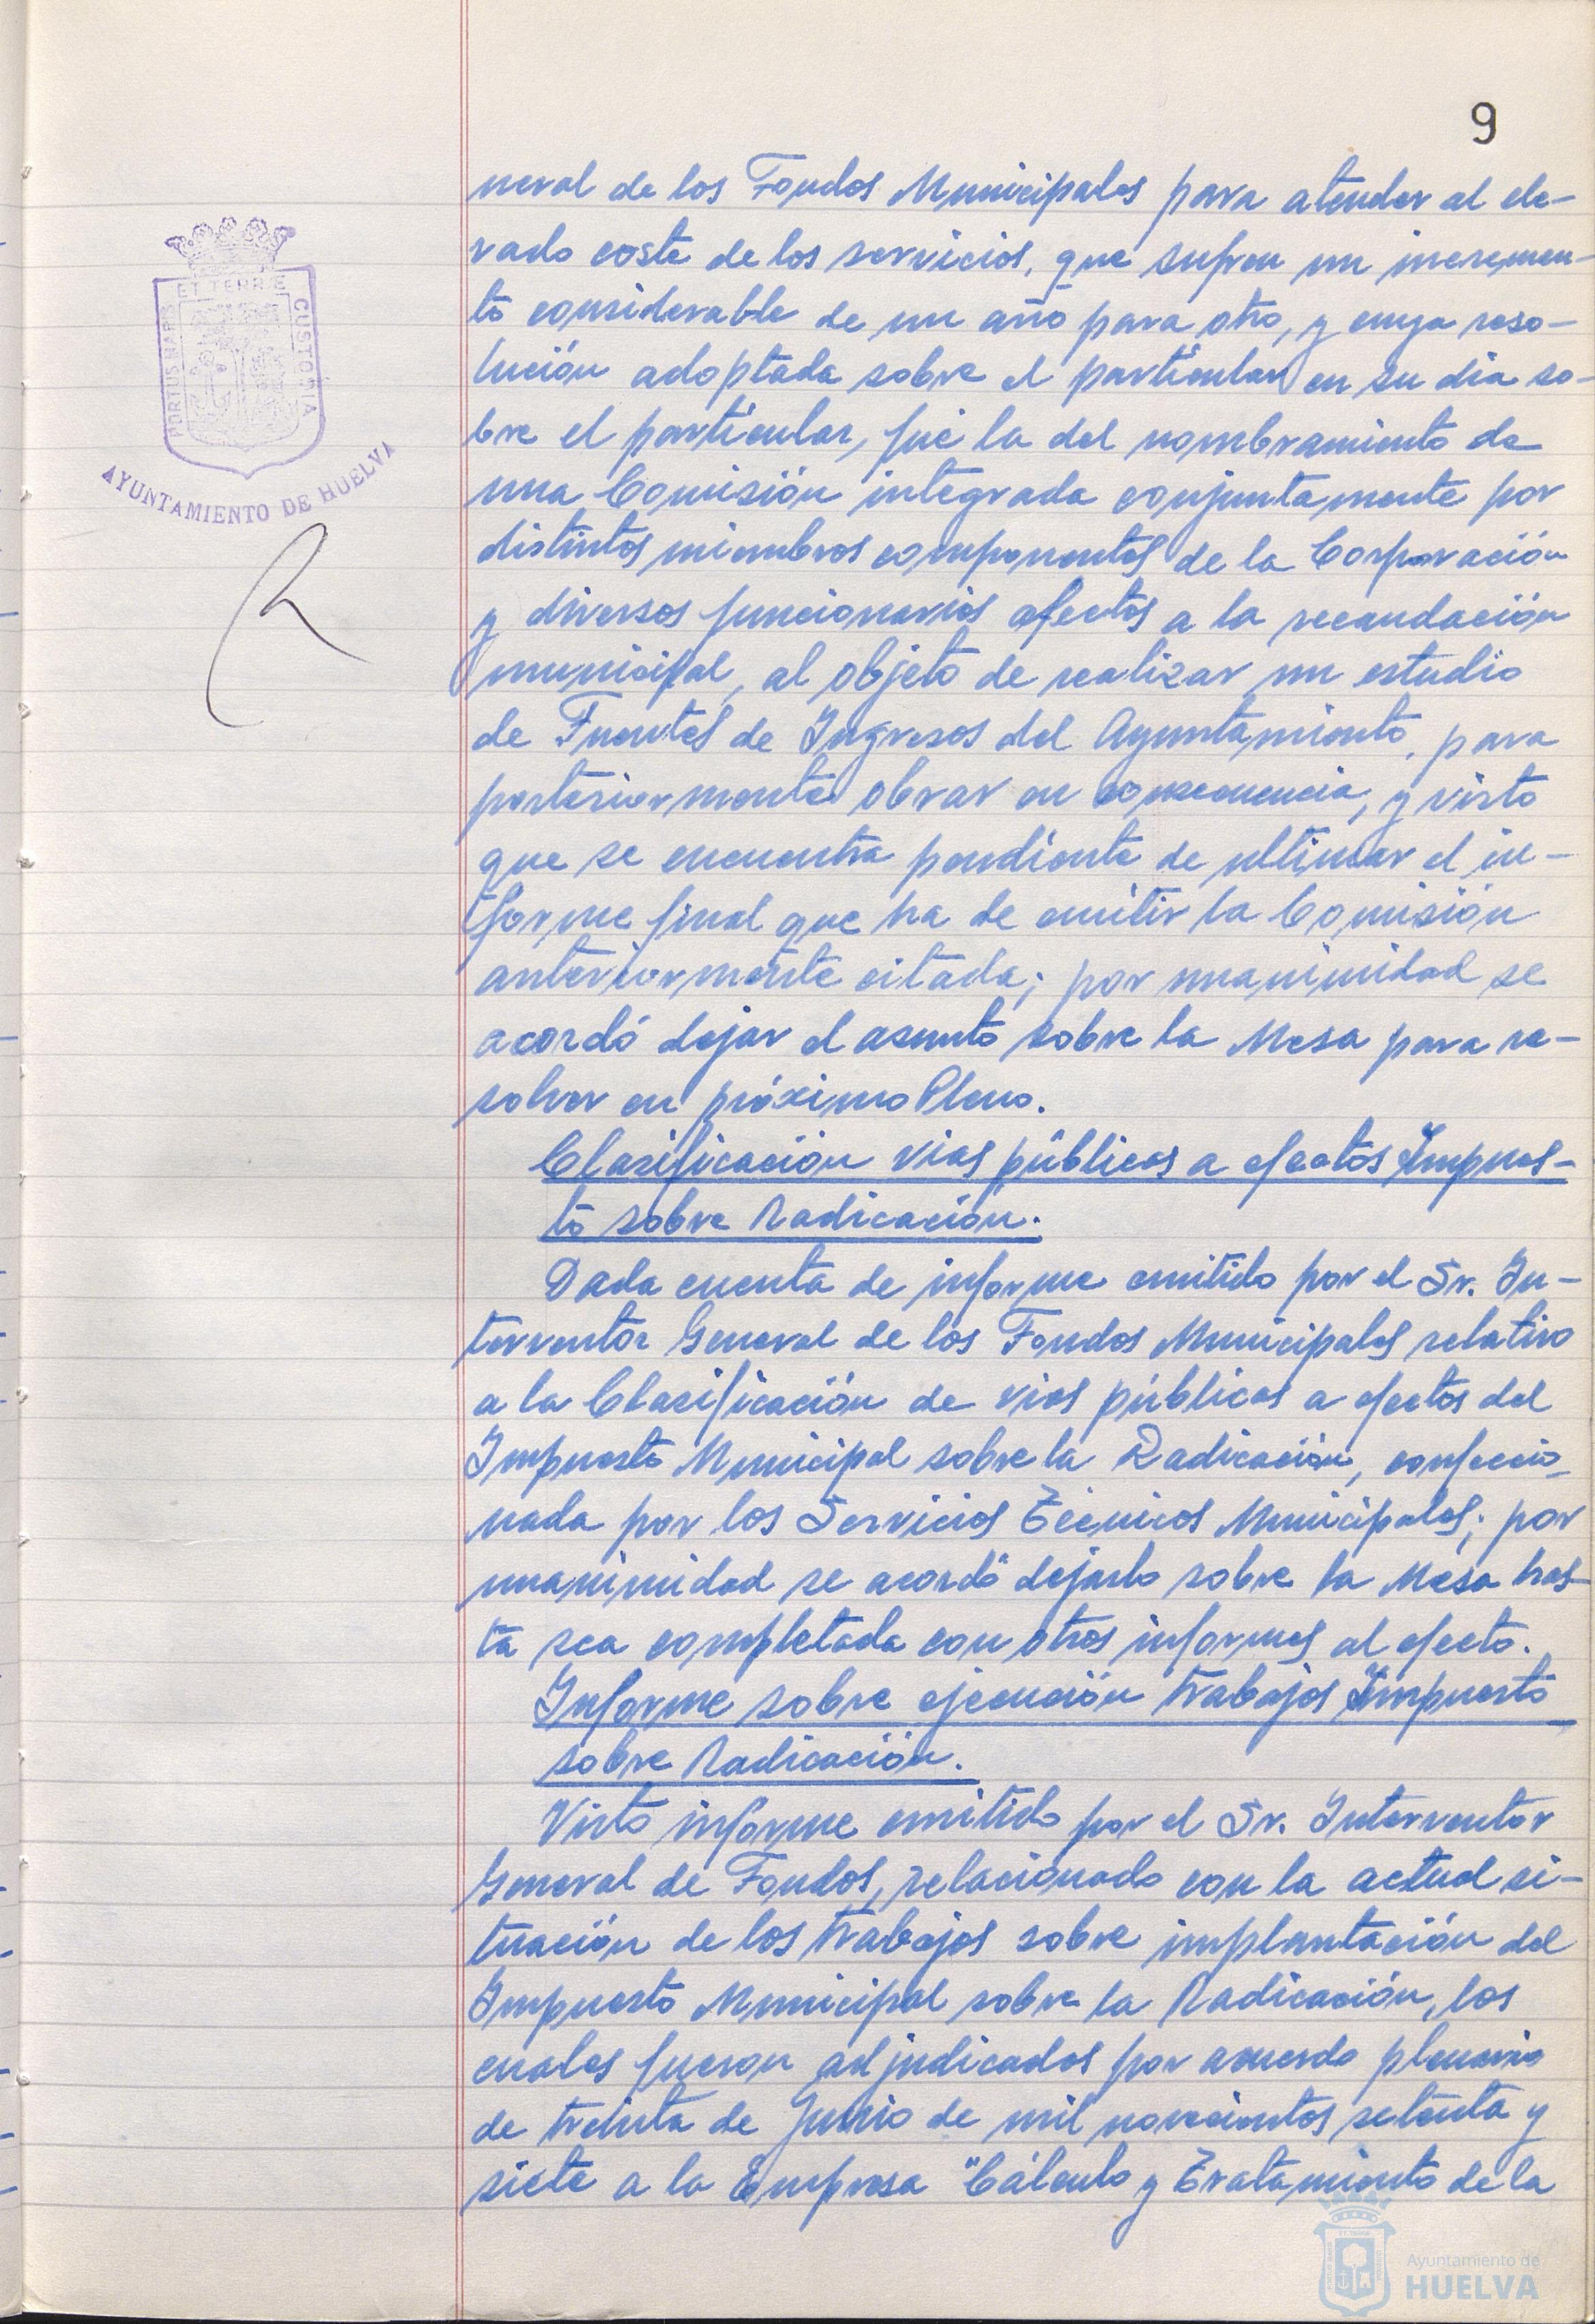 9
neral de los Fondos Municipales para atender al ele-
vado coste de los servicios, que sufren un incremen-
to considerable de un año para otro, y cuya reso-
lución adoptada sobre el particular en su dia so-
bre el particular, fué la del nombramiento de
una Comisión integrada conjuntamente por
distintos miembros componentes de la Corporación
y diversos funcionarios afectos a la recaudación
municipal, al objeto de realizar un estudio
de Fuentes de Ingresos del Ayuntamiento, para
posteriormente obrar en consecuencia, y visto
que se encuentra pendiente de ultimar el in-
forme final que ha de emitir la Comisión
anteriormente citada; por unanimidad se
acordó dejar el asunto sobre la Mesa para re-
solver en próximo Pleno.
Clasificación vias públicas a efectos Impues-
to sobre Radicación.
Dada cuenta de informe emitido por el Sr. In-
terventor General de los Fondos Municipales relativo
a la Clasificación de vias públicas a efectos del
Impuesto Municipal sobre la Radicación, confeccio-
nada por los Servicios Técnicos Municipales; por
unanimidad se acordó dejarlo sobre la Mesa has-
ta sea completada con otros informes al efecto.
Informe sobre ejecución trabajos Impuesto
sobre Radicación.
Visto informe emitido por el Sr. Interventor
General de Fondos, relacionado con la actual si-
tuación de los trabajos sobre implantación del
Impuesto Municipal sobre la Radicación, los
cuales fueron adjudicados por acuerdo plenario
de treinta de Junio de mil novecientos setenta y
siete a la Empresa "Cálculo y Tratamiento de la
PORTUS MARIS
ET TERRÆ
CUSTODIA
AYUNTAMIENTO DE HUELVA
Ayuntamiento de
HUELVA